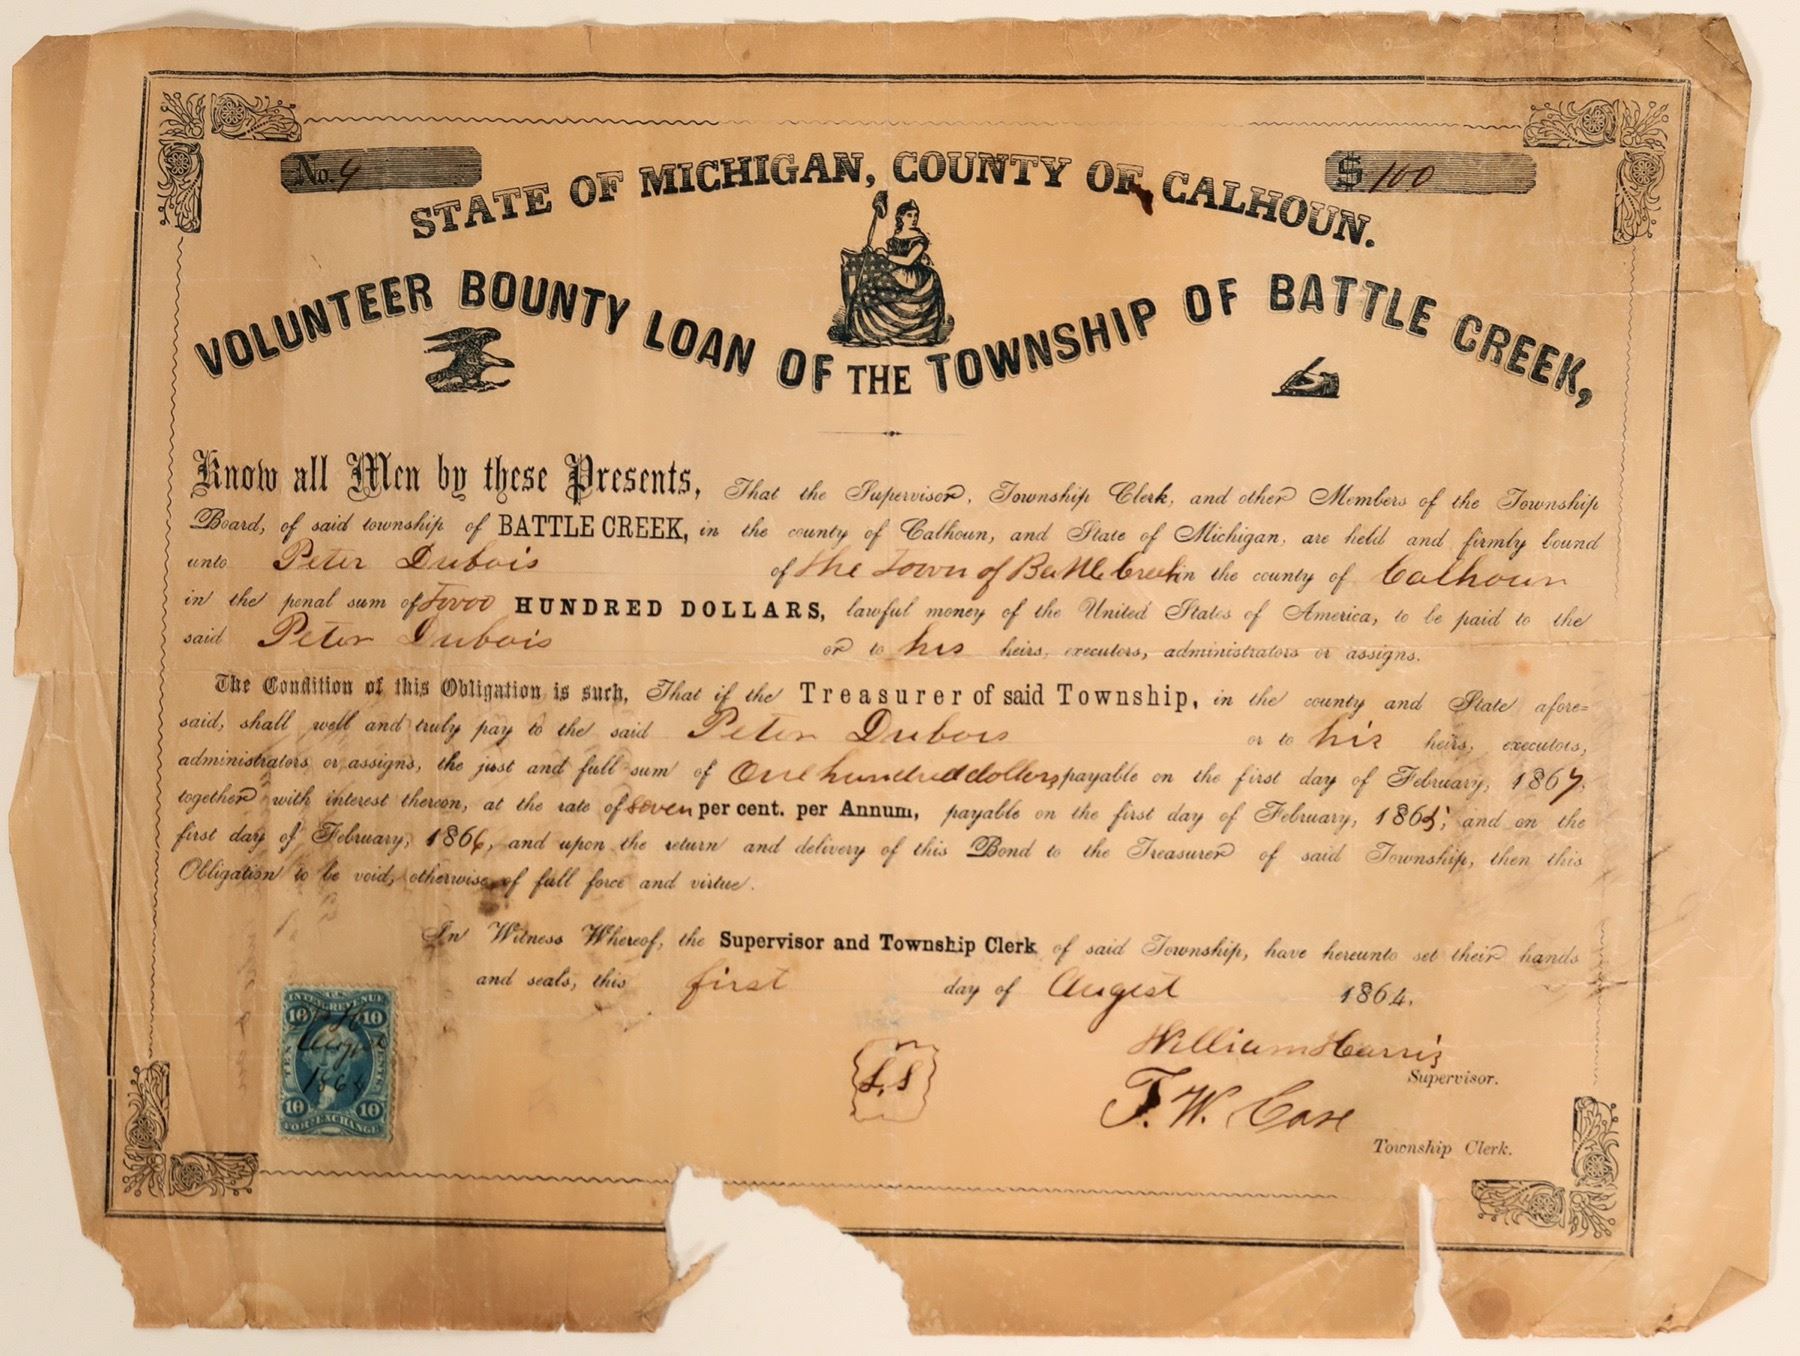 No. 4
$ 100
STATE OF MICHIGAN, COUNTY OF CALHOUN.
VOLUNTEER BOUNTY LOAN OF THE TOWNSHIP OF BATTLE CREEK,
Know all Men by these Presents, That the Supervisor, Township Clerk, and other Members of the Township
Board, of said township of BATTLE CREEK, in the county of Calhoun, and State of Michigan, are held and firmly bound
unto Peter Dubois of the Town of Battle Creek in the county of Calhoun
in the penal sum of Twoo HUNDRED DOLLARS, lawful money of the United States of America, to be paid to the
said Peter Dubois or to his heirs, executors, administrators or assigns.
The Condition of this Obligation is such, That if the Treasurer of said Township, in the county and State afore=
said, shall well and truly pay to the said Peter Dubois or to his heirs, executors,
administrators or assigns, the just and full sum of One hundred dollars payable on the first day of February, 1867,
together with interest thereon, at the rate of seven per cent. per Annum, payable on the first day of February, 1865, and on the
first day of February, 1866, and upon the return and delivery of this Bond to the Treasurer of said Township, then this
Obligation to be void, otherwise of full force and virtue.
In Witness Whereof, the Supervisor and Township Clerk of said Township, have hereunto set their hands
and seals, this first day of Augest 1864.
William Harris
Supervisor.
L.S
T. W. Case
Township Clerk.
INTER. REVENUE
10 10
1864
TEN CENTS
10 10
FOR. EXCHANGE